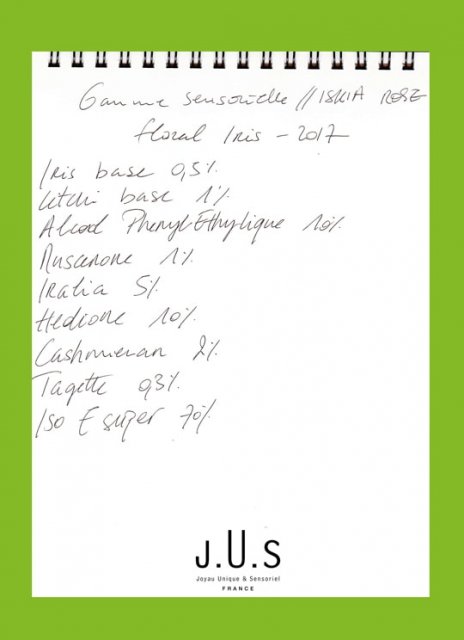 Gamme sensorielle // ISKIA ROSE
floral Iris - 2017
Iris base 0,5%
Litchi base 1%
Alcool Phenyl-Ethylique 10%
Muscenone 1%
Iralia 5%
Hedione 10%
Cashmeran 2%
Tagette 0,3%
Iso E super 70%
J.U.S
Joyau Unique & Sensoriel
FRANCE